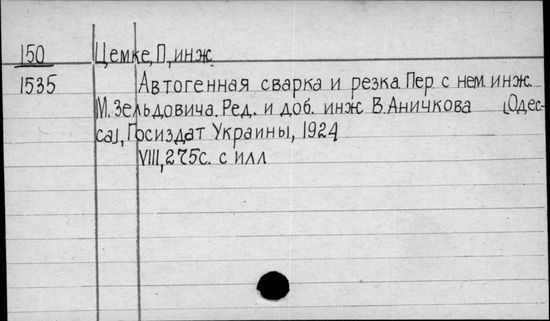 150 Цемке, П, инж.
1535 Автогенная сварка и резка. Пер. с нем. инж.
М. Зельдовича. Ред. и доб. инж В. Аничкова [Одес-
са], Госиздат Украины, 1924
VIII, 275с. с илл